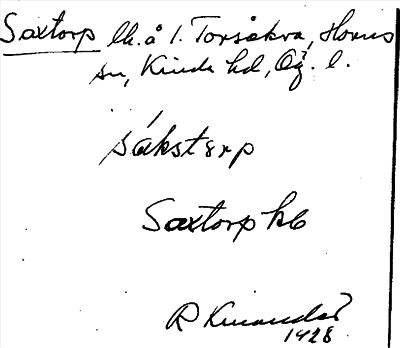 Saxtorp lh. å 1. Torsåkra, Horns
sn, Kinda hd, Ög. l.
sákstɛrp
Saxtorp kb
R Kinander
1928